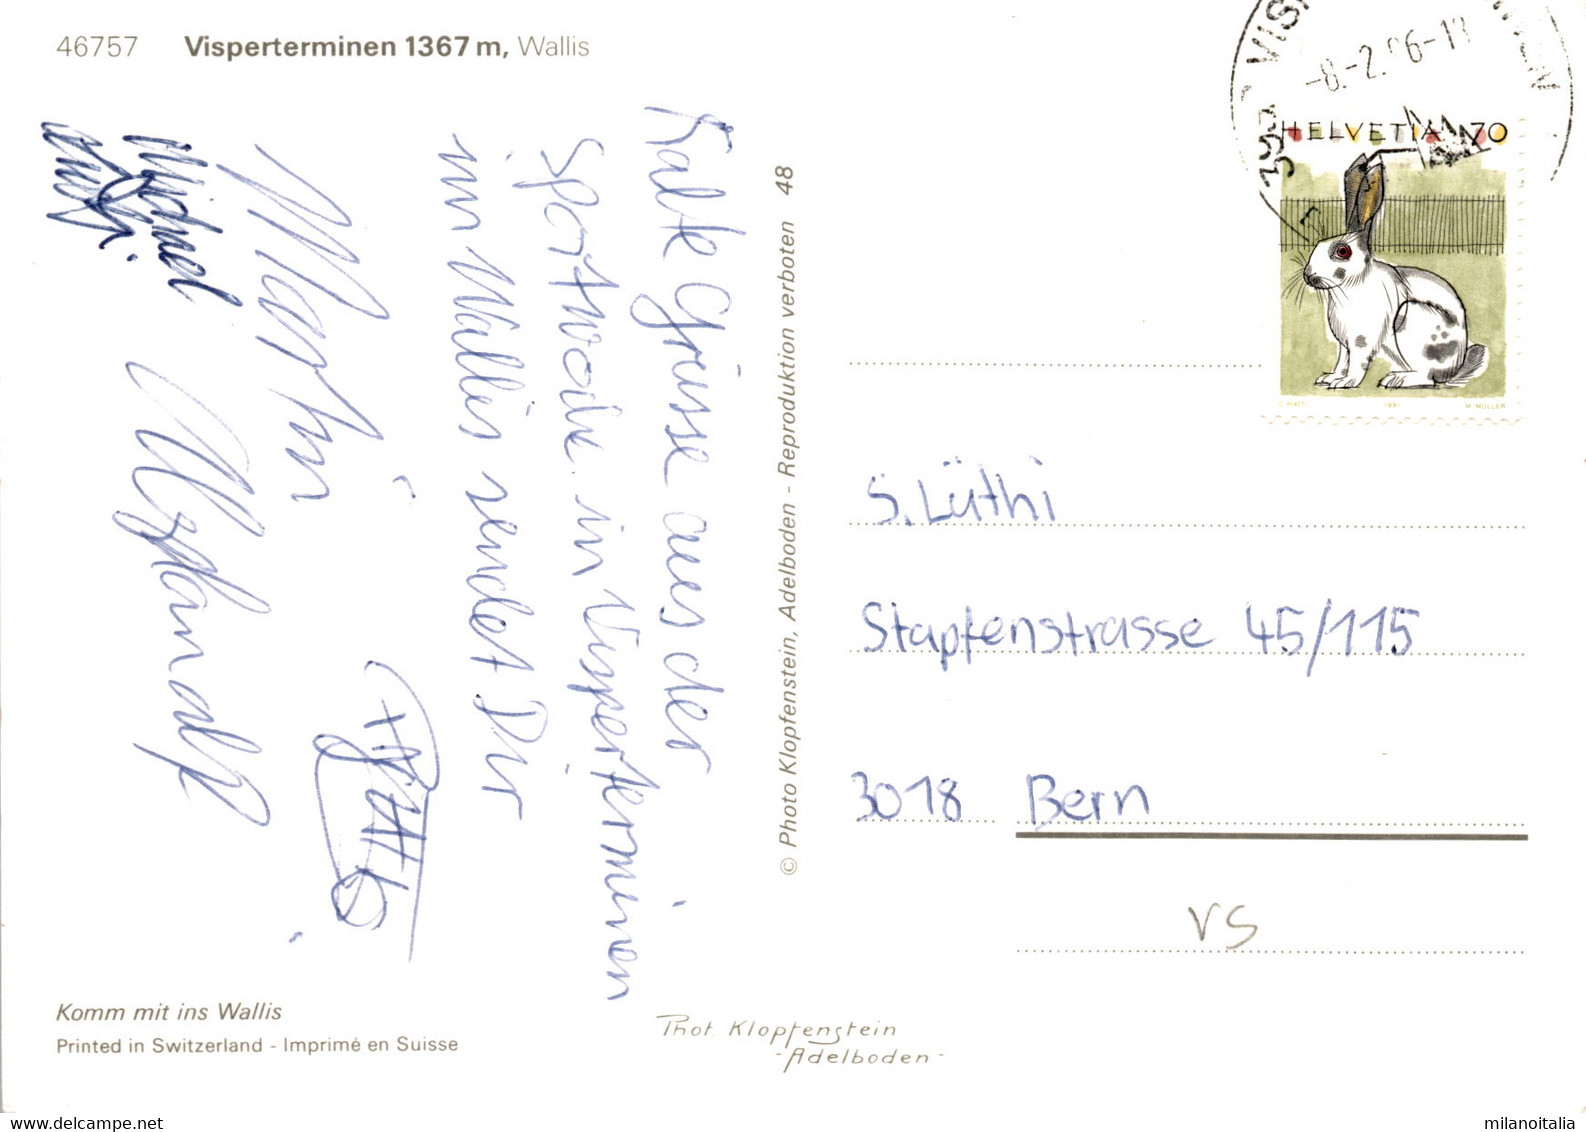 46757 Visperterminen 1367 m, Wallis
-8.-2.96-1
HELVETIA 70
C. PIATTI 1991 M. MÜLLER
Kalte Grüsse aus der
Sportwoche in Visperterminen
im Wallis sendet Dir
Martin
Michael
© Photo Klopfenstein, Adelboden - Reproduktion verboten 48
S. Lüthi
Stapfenstrasse 45/115
3018 Bern
VS
Komm mit ins Wallis
Printed in Switzerland - Imprimé en Suisse
Phot. Klopfenstein
-Adelboden-
www.delcampe.net
milanoitalia